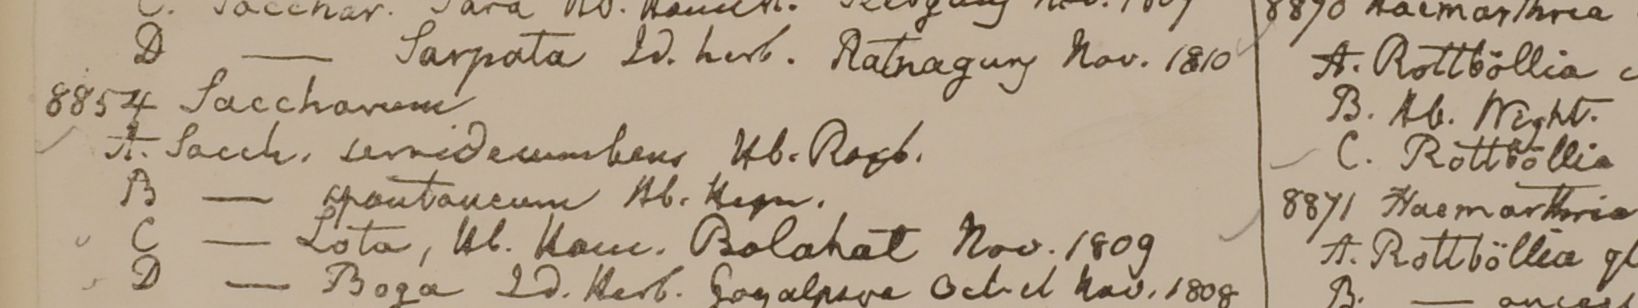 C. Sacchar. Sara Hb. Hamilt.
D — Sarpata Id. herb. Ratnagury Nov. 1810
8854 Saccharum
A. Sacch. semidecumbens Hb. Roxb.
B — spontaneum Hb. Heyn.
C — Lota, Hb. Ham. Bolahat Nov. 1809
D — Boga Id. Herb. Goyalpara Oct. et Nov. 1808
8870 Haemarthria
A. Rottböllia
B. Hb. Wight.
C. Rottböllia
8871 Haemarthria
A. Rottböllia gl
B. —